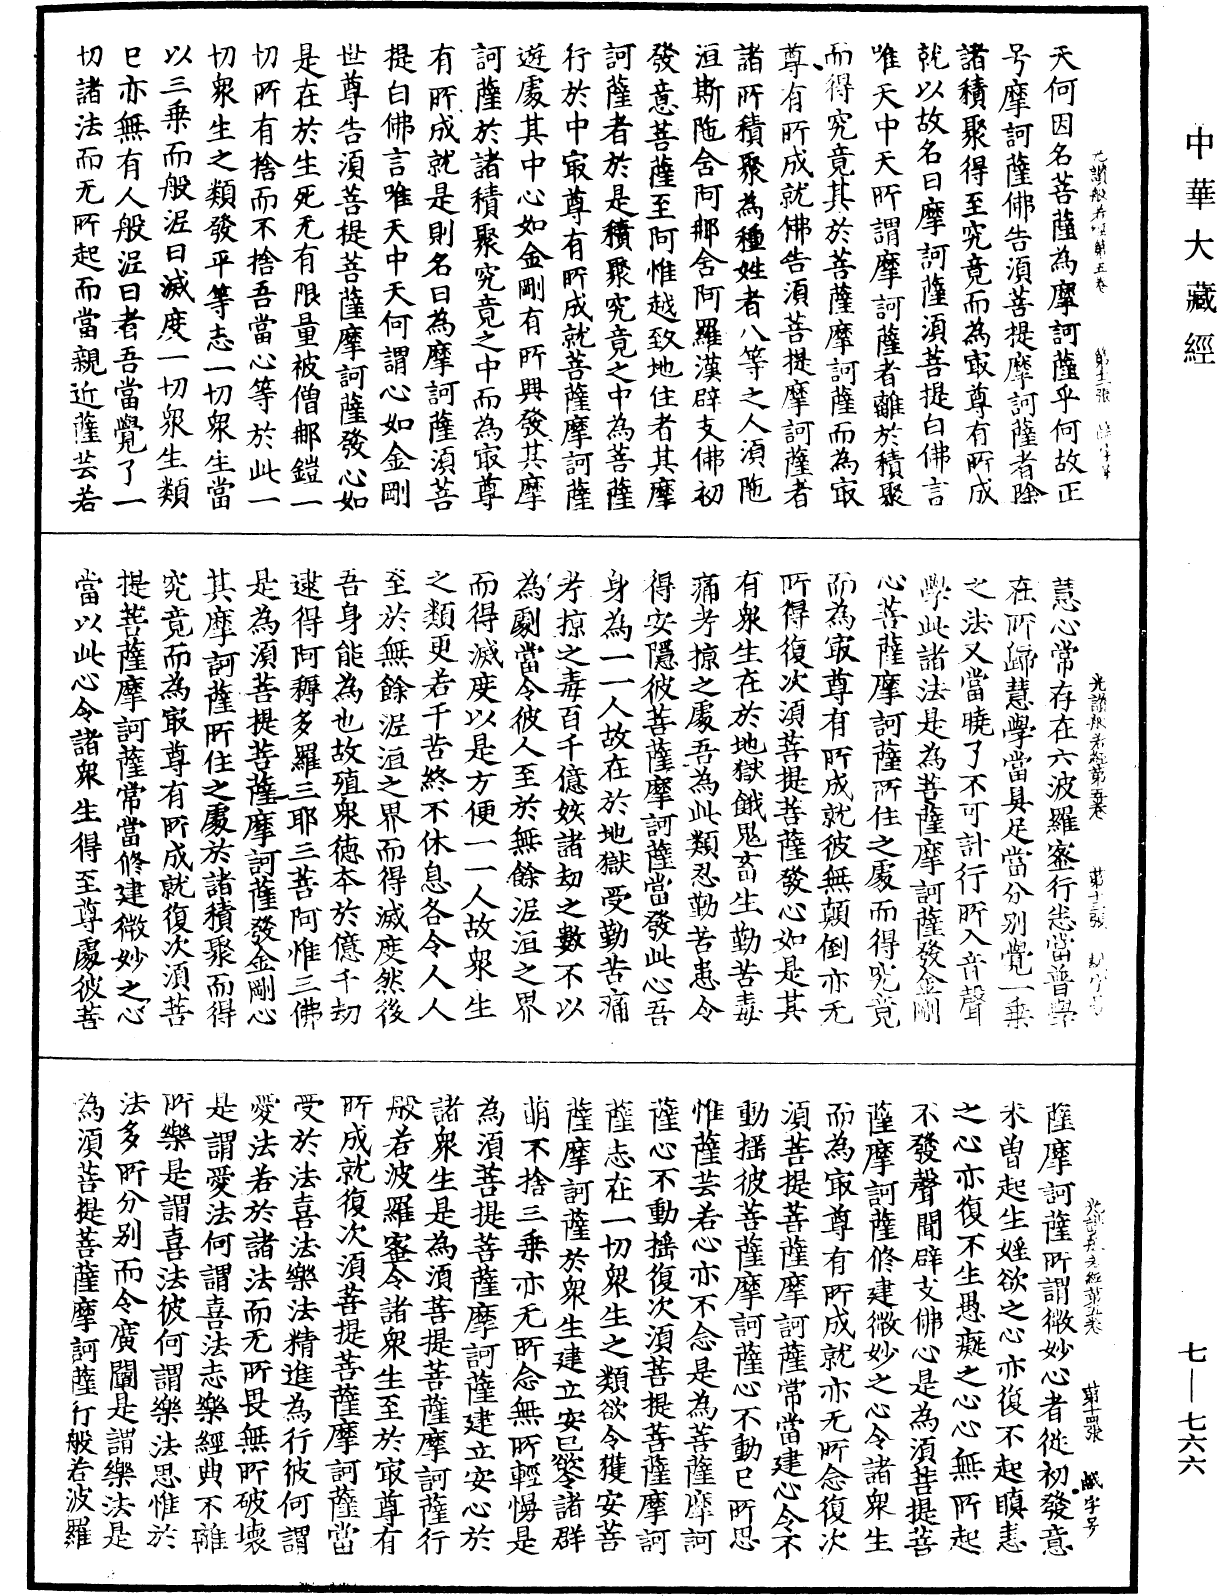 中華大藏經
光讚般若經第五卷 第十二張
天何因名菩薩為摩訶薩乎何故正
号摩訶薩佛告須菩提摩訶薩者除
諸積聚得至究竟而為㝡尊有所成
就以故名曰摩訶薩須菩提白佛言
唯天中天所謂摩訶薩者離於積聚
而得究竟其於菩薩摩訶薩而為㝡
尊有所成就佛告須菩提摩訶薩者
諸所積聚為種姓者八等之人須陁
洹斯陁含阿那含阿羅漢辟支佛初
發意菩薩至阿惟越致地住者其摩
訶薩者於是積聚究竟之中為菩薩
行於中㝡尊有所成就菩薩摩訶薩
遊處其中心如金剛有所興發其摩
訶薩於諸積聚究竟之中而為㝡尊
有所成就是則名曰為摩訶薩須菩
提白佛言唯天中天何謂心如金剛
世尊告須菩提菩薩摩訶薩發心如
是在於生死无有限量被僧那鎧一
切所有捨而不捨吾當心等於此一
切衆生之類發平等志一切衆生當
以三乘而般泥曰滅度一切衆生類
已亦無有人般泥曰者吾當覺了一
切諸法而无所起而當親近薩芸若
光讚般若經第五卷 第十三張 鹹字号
慧心常存在六波羅蜜行悉當普學
在所歸慧學當具足當分別覺一乘
之法又當曉了不可計行所入音聲
學此諸法是為菩薩摩訶薩發金剛
心菩薩摩訶薩所住之處而得究竟
而為㝡尊有所成就彼無顛倒亦无
所得復次須菩提菩薩發心如是其
有衆生在於地獄餓鬼畜生勤苦毒
痛考掠之處吾為此類忍勤苦患令
得安隱彼菩薩摩訶薩當發此心吾
身為一一人故在於地獄受勤苦痛
考掠之毒百千億姟諸劫之數不以
為劇當令彼人至於無餘泥洹之界
而得滅度以是方便一一人故衆生
之類更若干苦終不休息各令人人
至於無餘泥洹之界而得滅度然後
吾身能為也故殖衆德本於億千劫
逮得阿耨多羅三耶三菩阿惟三佛
是為須菩提菩薩摩訶薩發金剛心
其摩訶薩所住之處於諸積聚而得
究竟而為㝡尊有所成就復次須菩
提菩薩摩訶薩常當修建微妙之心
當以此心令諸衆生得至尊處彼菩
光讚般若經第五卷 第十四張 鹹字号
薩摩訶薩所謂微妙心者從初發意
未曾起生婬欲之心亦復不起瞋恚
之心亦復不生愚癡之心心無所起
不發聲聞辟支佛心是為須菩提菩
薩摩訶薩修建微妙之心令諸衆生
而為㝡尊有所成就亦无所念復次
須菩提菩薩摩訶薩常當建心令不
動搖彼菩薩摩訶薩心不動已所思
惟薩芸若心亦不念是為菩薩摩訶
薩心不動搖復次須菩提菩薩摩訶
薩志在一切衆生之類欲令獲安菩
薩摩訶薩於衆生建立安已欲令諸群
萌不捨三乘亦无所念無所輕慢是
為須菩提菩薩摩訶薩建立安心於
諸衆生是為須菩提菩薩摩訶薩行
般若波羅蜜令諸衆生至於㝡尊有
所成就復次須菩提菩薩摩訶薩當
受於法喜法樂法精進為行彼何謂
愛法若於諸法而无所畏無所破壞
是謂愛法何謂喜法志樂經典不離
所樂是謂喜法彼何謂樂法思惟於
法多所分別而令廣闡是謂樂法是
為須菩提菩薩摩訶薩行般若波羅
七—七六六